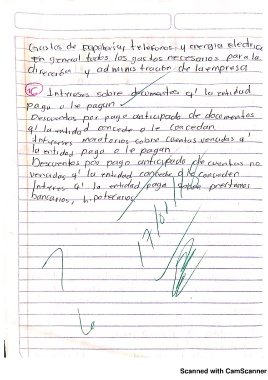 Gastos de papelería, teléfonos y energía eléctrica
en general todos los gastos necesarios para la
dirección y administración de la empresa
Intereses sobre documentos q' la entidad
paga o le pagan
Descuentos por pago anticipado de documentos
q' la entidad concede o le concedan
Intereses moratorios sobre cuentas vencidas q'
la entidad paga o le pagan
Descuentos por pago anticipado de cuentas no
vencidas q' la entidad concede o le conceden
Interes q' la entidad paga sobre prestamos
bancarios, hipotecarios
Scanned with CamScanner